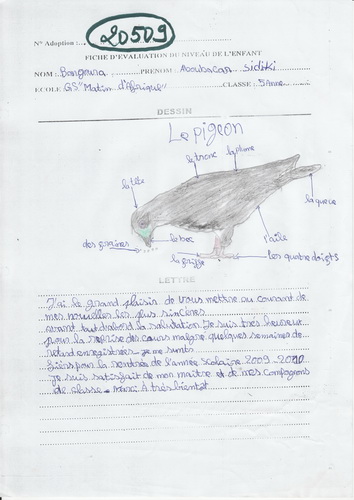 N° Adoption : 20509
FICHE D'EVALUATION DU NIVEAU DE L'ENFANT
NOM : Bangoura PRENOM : Aboubacar Sidiki
ECOLE GS "Matin d'Afrique" CLASSE : 5 Anne
DESSIN
Le pigeon
le tronc la plume
la tête
la queue
des graines le bec l'aile
la griffe les quatre doigts
LETTRE
J'ai le grand plaisir de vous mettre au courant de
mes nouvelles les plus sincères
avant tout d'abord la salutation. Je suis très heureux
pour la reprise des cours malgré quelques semaines de
retard enregistrées je me suits
pour la rentrée de l'année scolaire 2009 2010
Je suis satisfait de mon maître et de mes compagnons
de classe. Merci A très bientôt